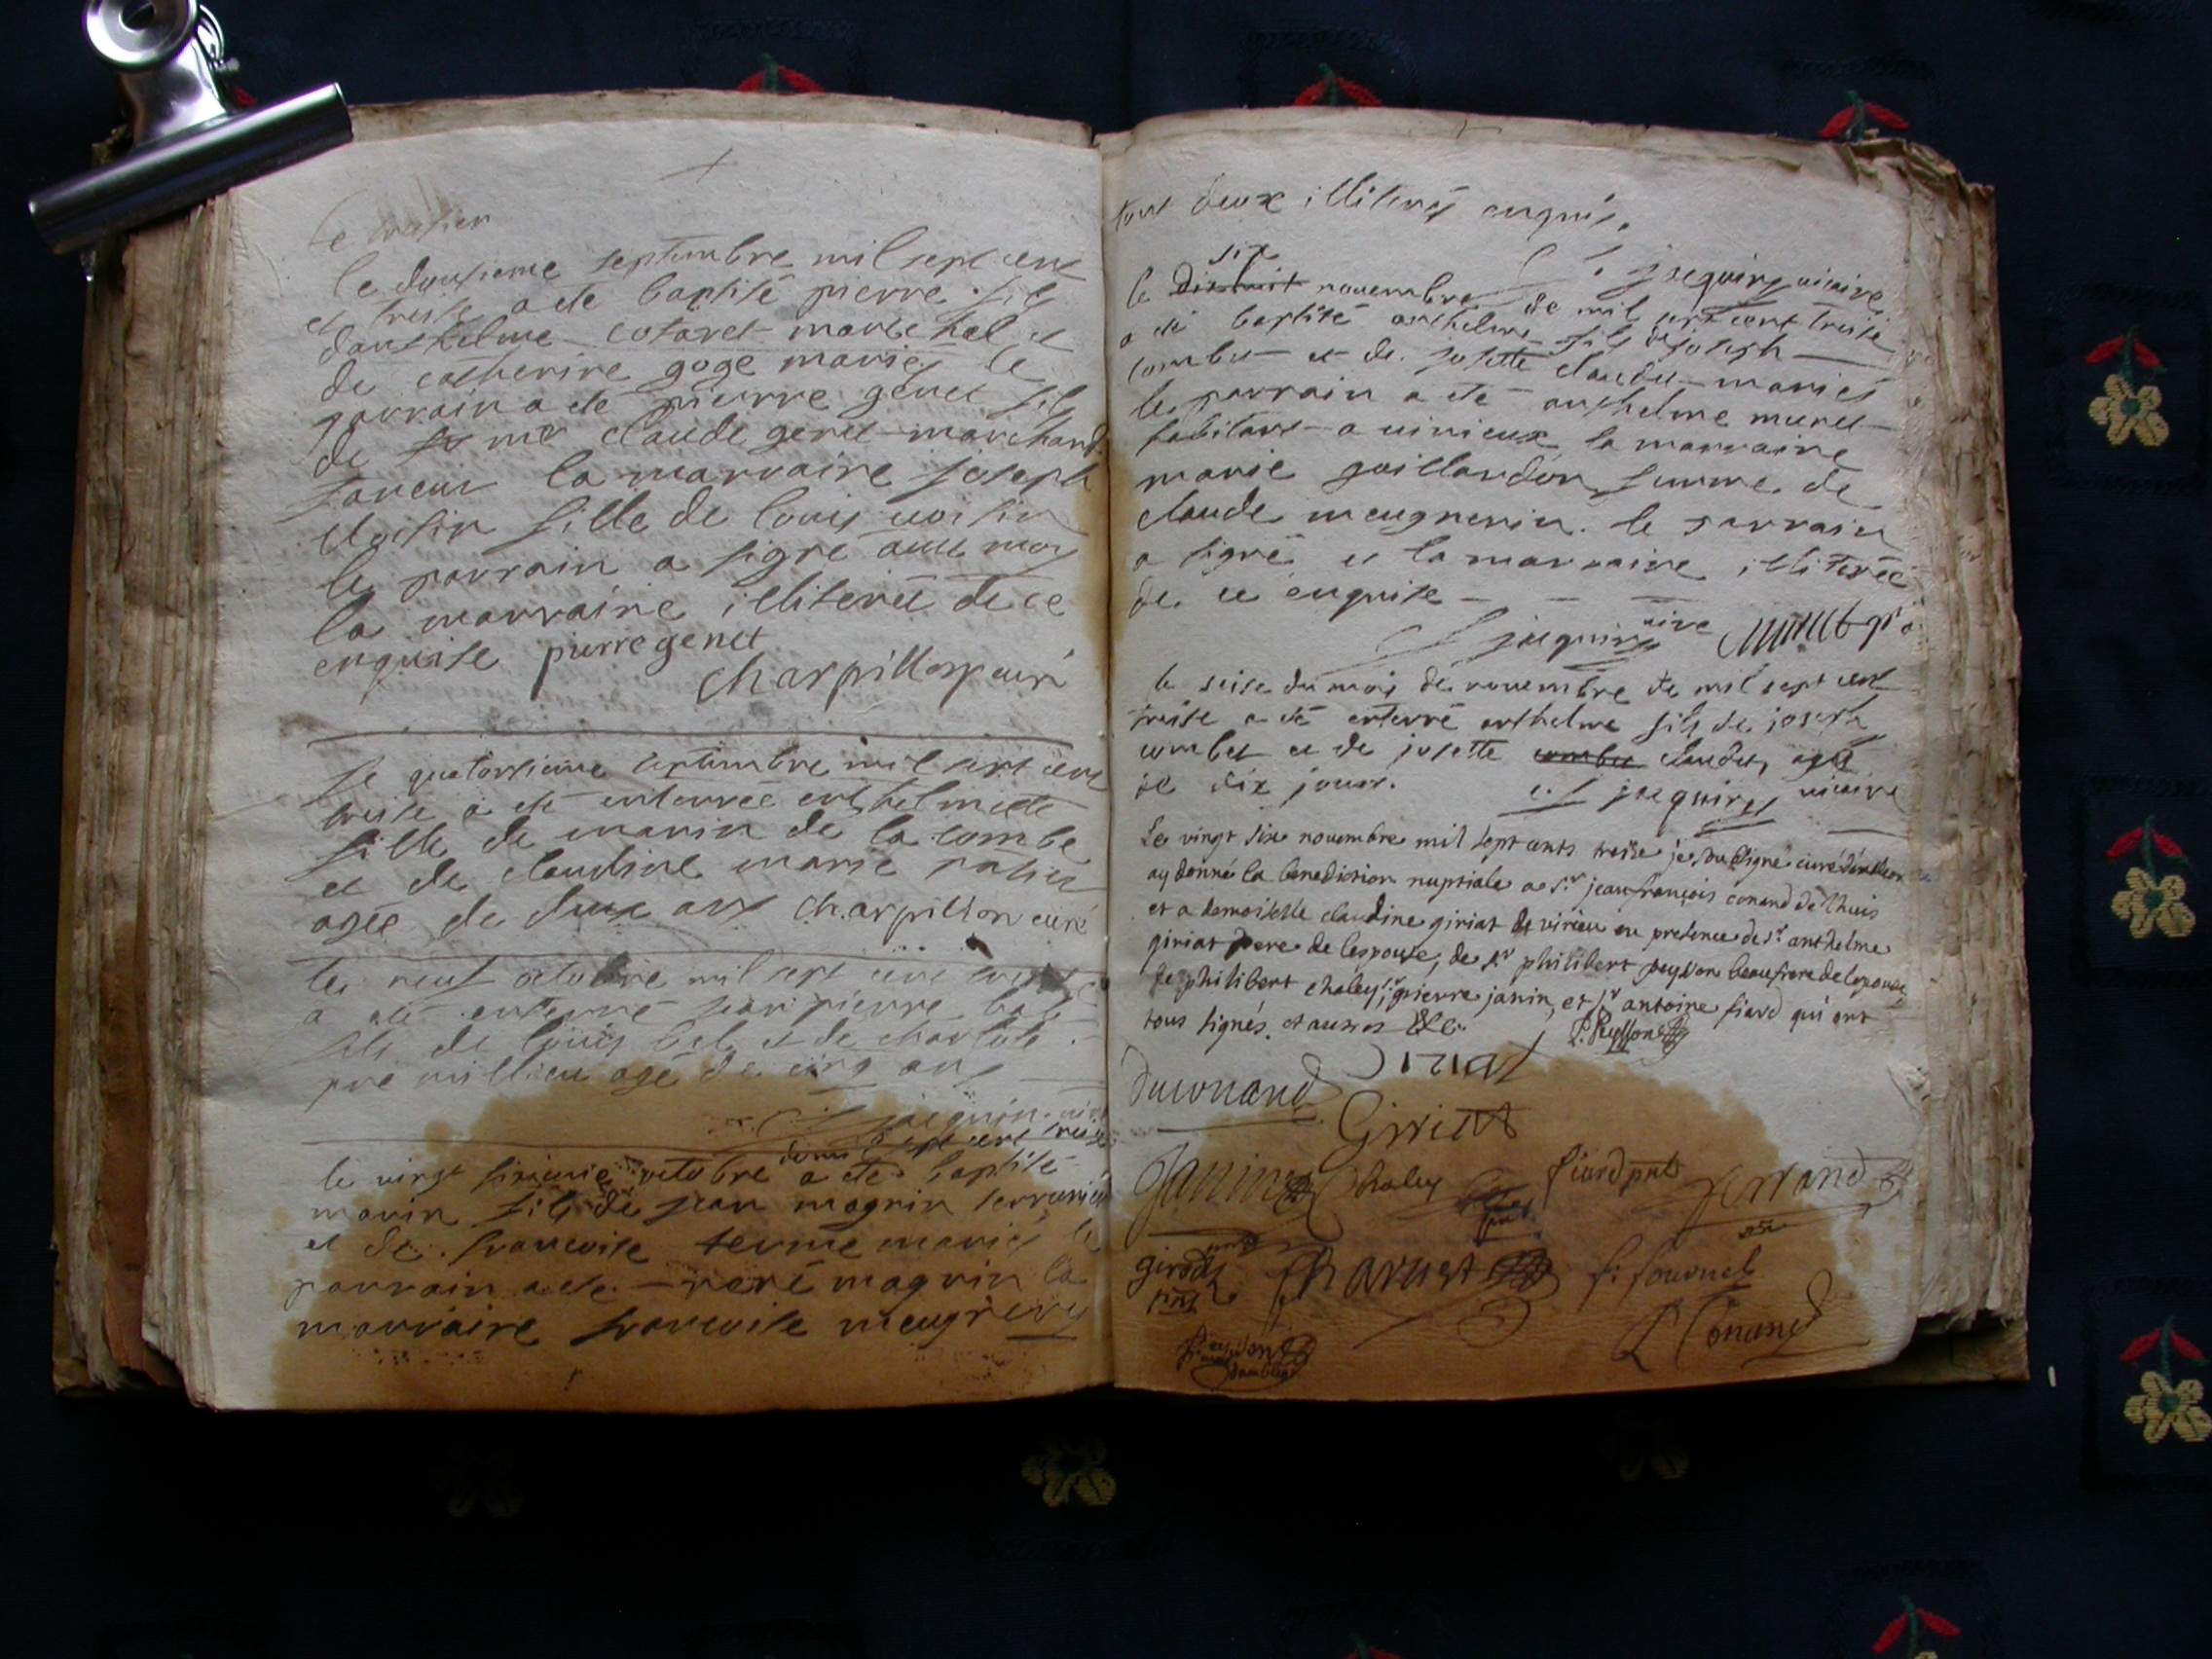 le douzieme septembre mil sept cent
et treise a ete baptisé pierre fils
danthelme cotaret marechal et
de catherine goge mariés le
parrain a ete pierre genet fils
de me claude genet marchand
la marraine joseph
fille de louis voisin
le parrain a signé avec moy
la marraine illiterée de ce
enquise pierre genet
charpillon curé
le quatorsieme septembre mil sept cent
treise a eté enterrée enthelmette
fille de marin de la combe
et de claudine marie
agée de deux ans charpillon curé
le neuf octobre mil sept cent treise
a eté enterré jean pierre
fils de louis et de charlote
premillieu agé de cinq ans
jacquin
de mil sept cent treise
le vingt sixieme octobre a ete baptisé
marin fils de jean magnin
et de francoise terme mariés le
parrain a ete rené magnin la
marraine francoise meugneru
tout deux illiterés enquis.
jacquin vicaire
six
le dixhuit novembre de mil sept cent treise
a eté baptisé anthelme fils de joseph
combet et de josette claudet mariés
le parrain a eté anthelme muret
habitant a virieux la marraine
marie guillaudon femme de
claude meugnerin. le parrain
a signé et la marraine illiterée
de ce enquise
jacquin vicre
le seise du mois de novembre de mil sept cent
treise a eté enterré anthelme fils de joseph
combet et de josette combet claudet, agé
de dix jours. jacquin vicaire
Le vingt six novembre mil sept cents treize je soussigné curé
ay donné la benediction nuptiale a Sr. jean françois conand de lhuis
et a demoiselle claudine giriat de virieu en presence de Sr. anthelme
giriat pere de lespouse, de Sr philibert peysson beaufrere de lepouse
de philibert chaley, Sr. pierre janin, et Sr antoine fiard qui ont
tous signés. et autres &c. P. Peysson
Giriat
Duconand
Girriat
Janin Chaley fiard pnt ferrand
girod pnt
f. fournet
Conand